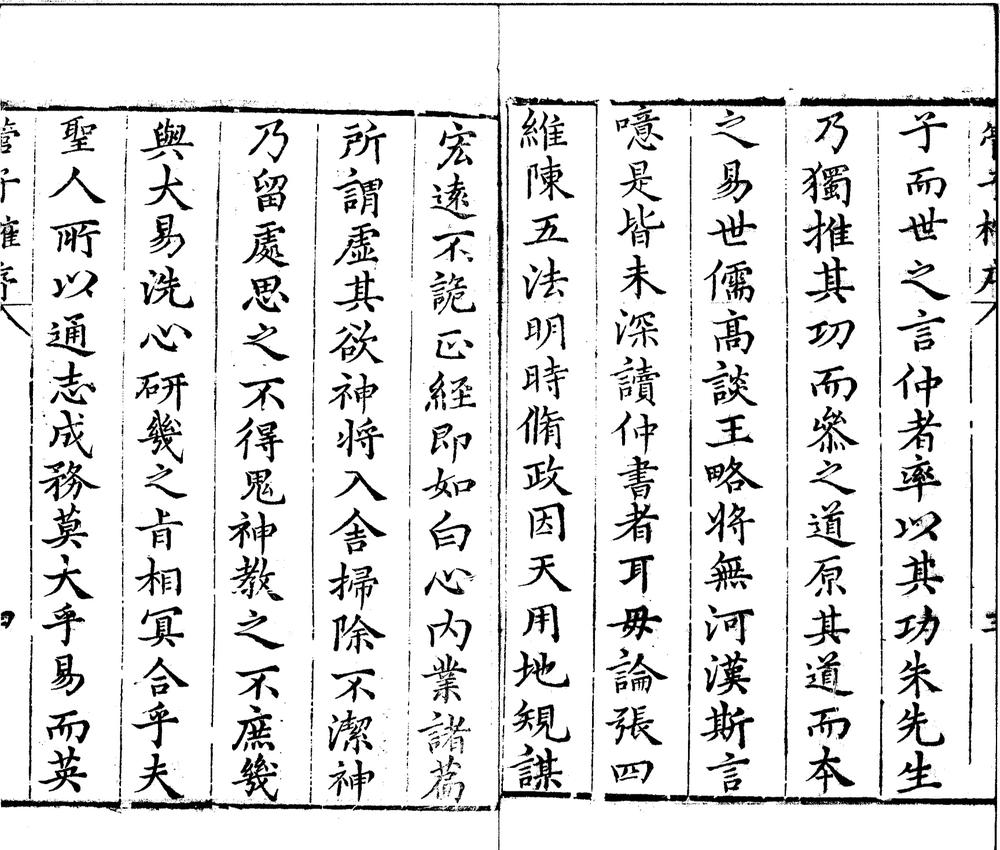 子而世之言仲者率以其功朱先生
乃獨推其功而叅之道原其道而本
之易世儒高談王略將無河漢斯言
噫是皆未深讀仲書者耳毋論張四
維陳五法明時脩政因天用地規謀
宏遠不詭正經即如白心内業諸篇
所謂虛其欲神将入舍掃除不潔神
乃留處思之不得鬼神教之不庶幾
與大易洗心研幾之旨相冥合乎夫
聖人所以通志成務莫大乎易而英
管子榷序
四